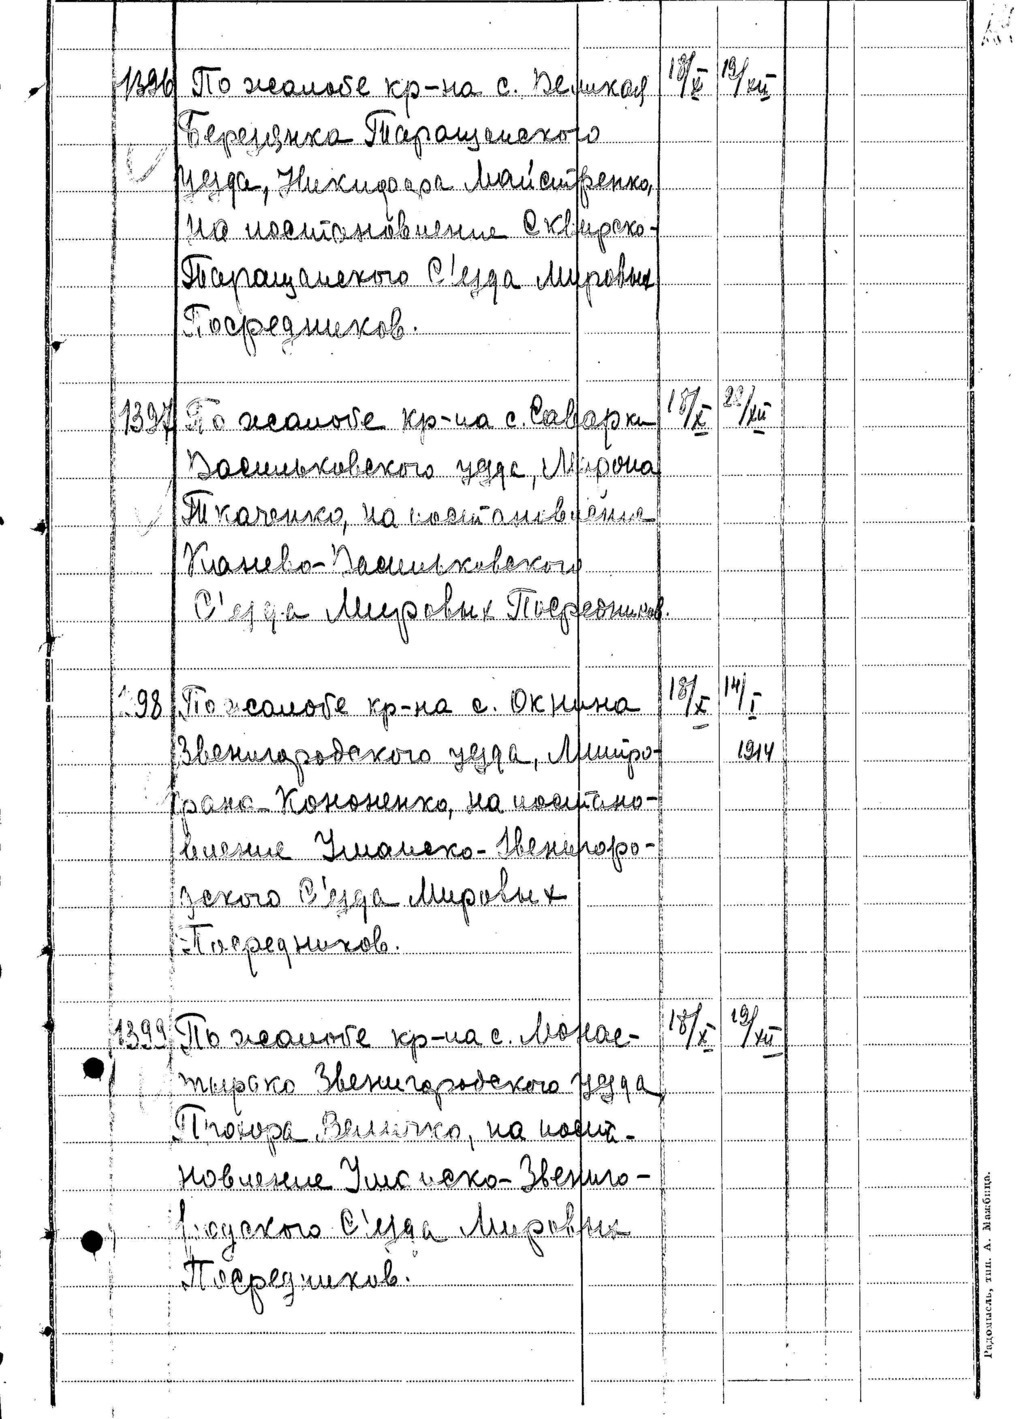 1396 По жалобе кр-на с. Великая 18/X 19/XII
Березянка Таращанского
уезда, Никифора Майстренко,
на постановление Сквирско-
Таращанского С'езда Мировых
Посредников.
1397 По жалобе кр-на с. Саварки 18/X XII
Васильковского уезда, Мирона
Ткаченко, на постановление
Канево-Васильковского
С'езда Мировых Посредников.
98 По жалобе кр-на с. Окнина 18/X 14/I
Звенигородского уезда, Митро- 1914
фана Кононенко, на постано-
вление Уманско-Звенигоро-
дского С'езда Мировых
Посредников.
1399 По жалобе кр-на с. Монас- 18/X 19/XII
тырско Звенигородского уезда
Прохора Величко, на поста-
новление Уманско-Звениго-
родского С'езда Мировых
Посредников.
Радомысль, тип. А. Мажбица.